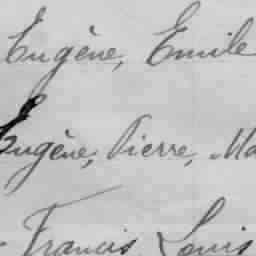 Eugène, Emile
Eugène, Pierre, Ma
Francis Louis